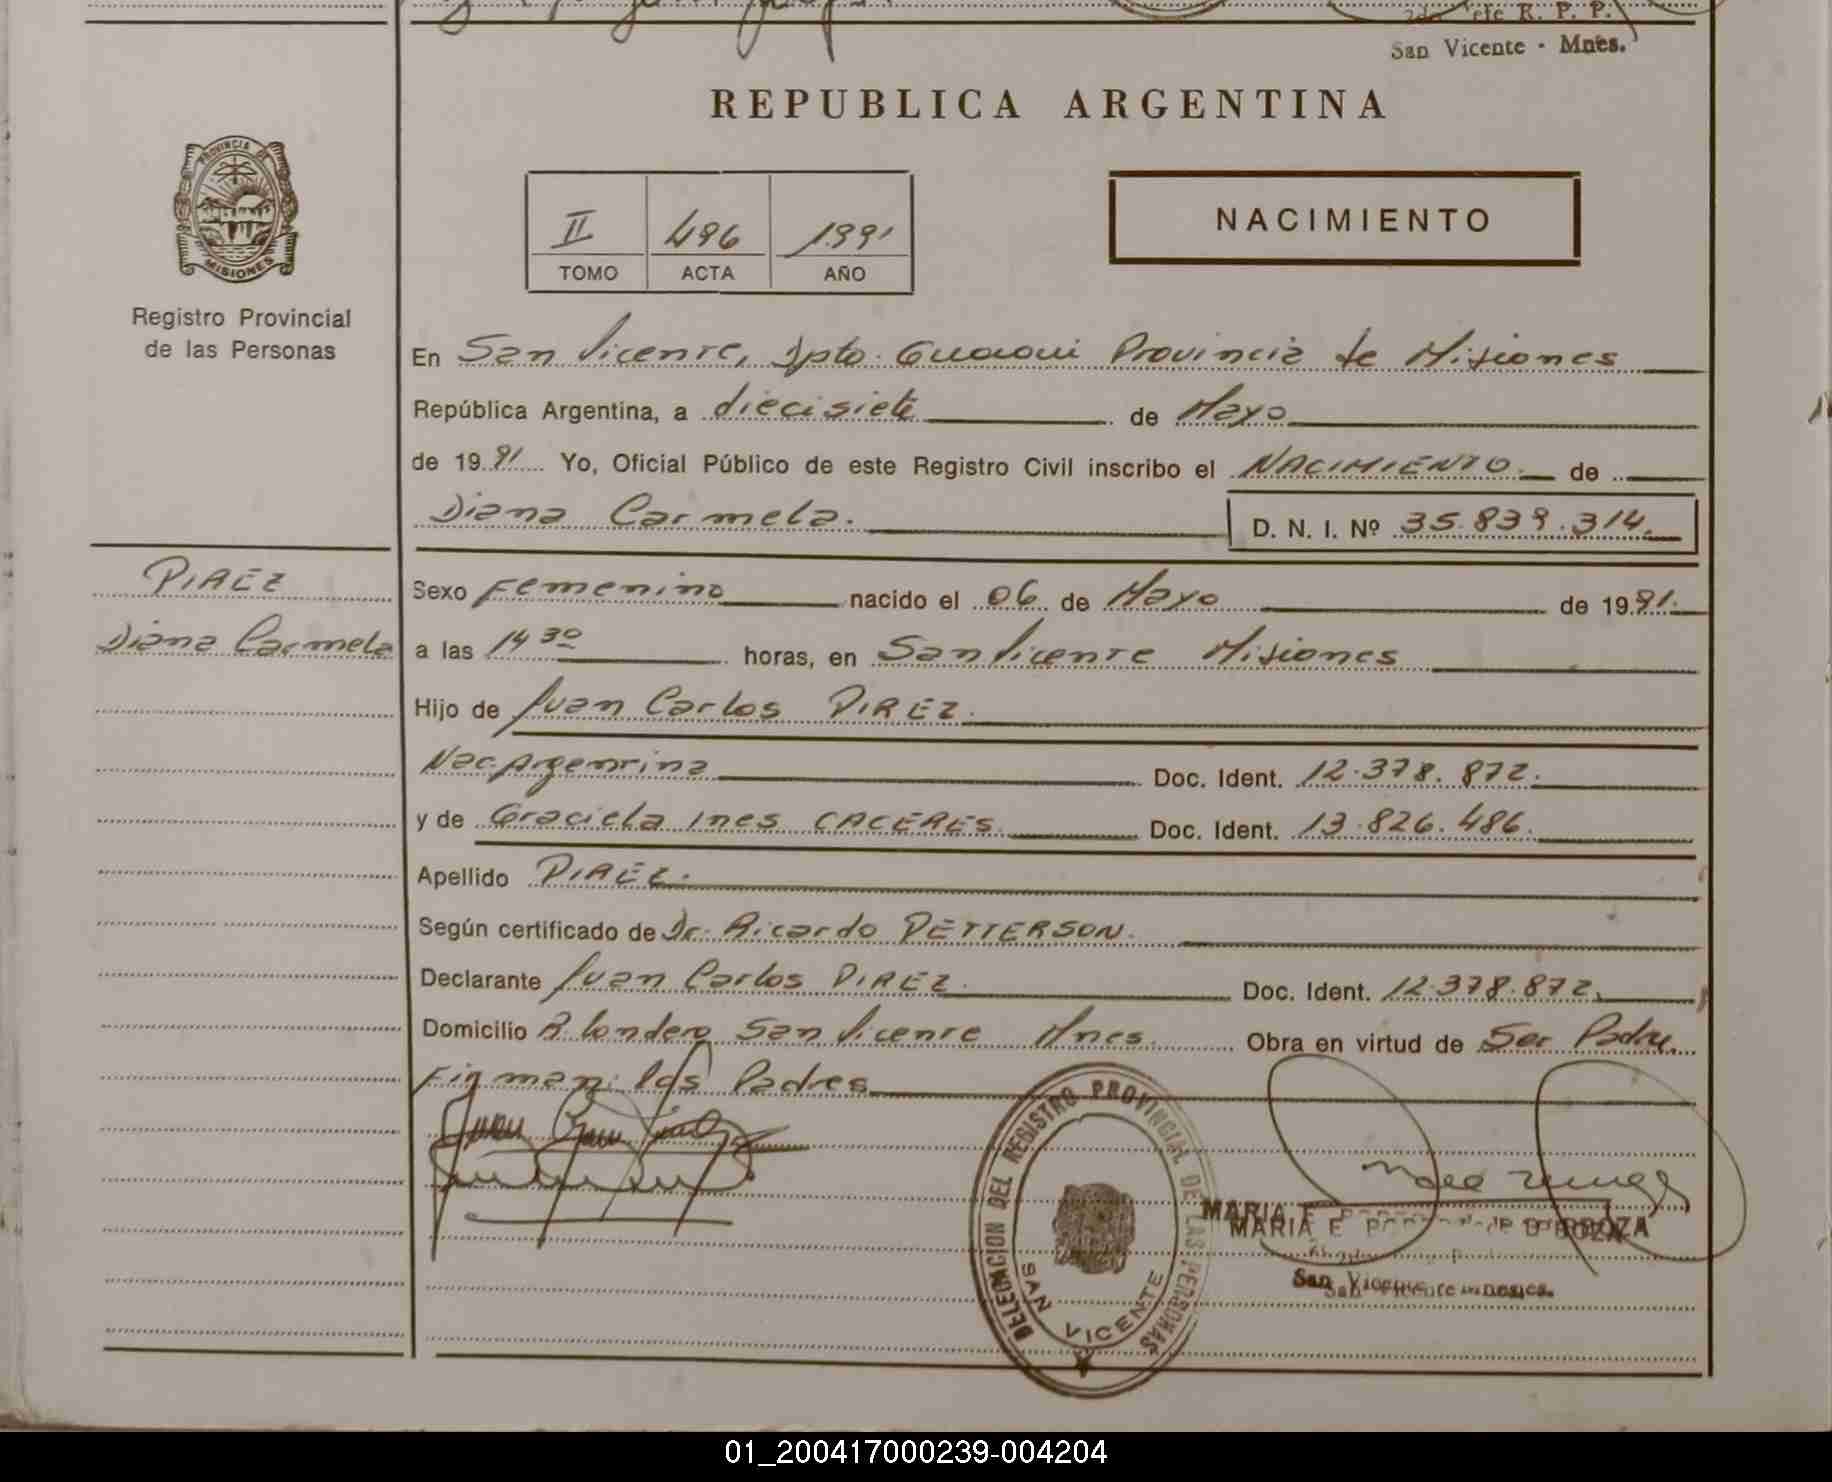 2do Jefe R. P. P.
San Vicente - Mnes.
REPUBLICA ARGENTINA
PROVINCIA DE MISIONES
Registro Provincial
de las Personas
II 496 1991
TOMO ACTA AÑO
NACIMIENTO
En San Vicente, Dpto. Guaraní Provincia de Misiones
República Argentina, a diecisiete de Mayo
de 1991 Yo, Oficial Público de este Registro Civil inscribo el NACIMIENTO de
Diana Carmela. D. N. I. Nº 35.839.314.
PIREZ
Diana Carmela
Sexo Femenino nacido el 06 de Mayo de 1991.
a las 14 30 horas, en San Vicente Misiones
Hijo de Juan Carlos PIREZ.
Nac. Argentina Doc. Ident. 12.378.872.
y de Graciela Ines CACERES. Doc. Ident. 13.826.486.
Apellido PIREZ.
Según certificado de Dr. Ricardo PETTERSON.
Declarante Juan Carlos PIREZ. Doc. Ident. 12.378.872.
Domicilio B. Londero San Vicente Mnes. Obra en virtud de Ser Padre.
Firman: los Padres
DELEGACION DEL REGISTRO PROVINCIAL DE LAS PERSONAS
SAN VICENTE
MARIA E
San Vicente
01_200417000239-004204